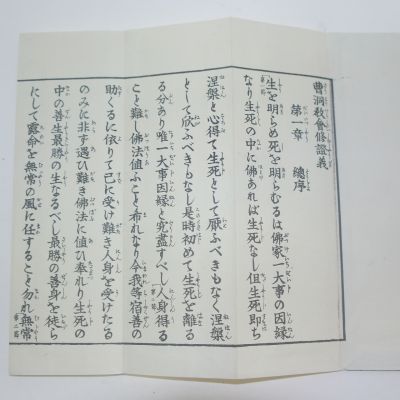 曹洞教會修證義
第一章 總序
生を明らめ死を明らむるは佛家一大事の因縁
なり生死の中に佛あれば生死なし但生死即ち
涅槃と心得て生死として厭ふべきもなく涅槃
として欣ふべきもなし是時初めて生死を離る
る分あり唯一大事因縁と究盡すべし人身得る
こと難し佛法値ふこと希れなり今我等宿善の
助くるに依りて已に受け難き人身を受けたる
のみに非ず遇ひ難き佛法に値ひ奉れり生死の
中の善生最勝の生なるべし最勝の善身を徒ら
にして露命を無常の風に任すること勿れ無常